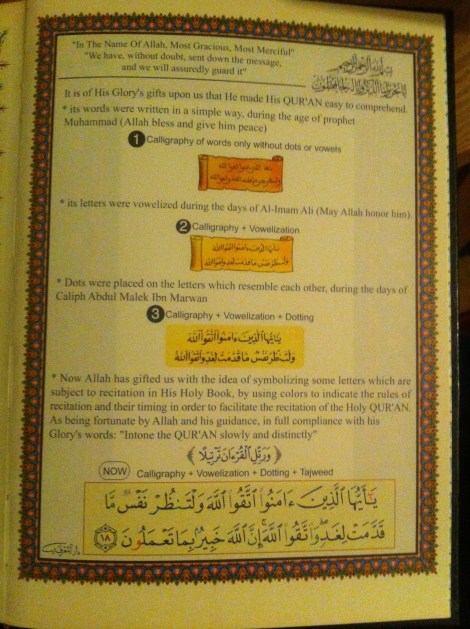 "In The Name Of Allah, Most Gracious, Most Merciful"
"We have, without doubt, sent down the message,
and we will assuredly guard it"
بسم الله الرحمن الرحيم
It is of His Glory's gifts upon us that He made His QUR'AN easy to comprehend.
* its words were written in a simple way, during the age of prophet
Muhammad (Allah bless and give him peace)
1 Calligraphy of words only without dots or vowels
* its letters were vowelized during the days of Al-Imam Ali (May Allah honor him).
2 Calligraphy + Vowelization
* Dots were placed on the letters which resemble each other, during the days of
Caliph Abdul Malek Ibn Marwan
3 Calligraphy + Vowelization + Dotting
يَٰٓأَيُّهَا ٱلَّذِينَ ءَامَنُوا۟ ٱتَّقُوا۟ ٱللَّهَ
وَلْتَنظُرْ نَفْسٌ مَّا قَدَّمَتْ لِغَدٍ وَٱتَّقُوا۟ ٱللَّهَ
* Now Allah has gifted us with the idea of symbolizing some letters which are
subject to recitation in His Holy Book, by using colors to indicate the rules of
recitation and their timing in order to facilitate the recitation of the Holy QUR'AN.
As being fortunate by Allah and his guidance, in full compliance with his
Glory's words: "Intone the QUR'AN slowly and distinctly"
﴿ وَرَتِّلِ ٱلْقُرْءَانَ تَرْتِيلًا ﴾
NOW Calligraphy + Vowelization + Dotting + Tajweed
يَٰٓأَيُّهَا ٱلَّذِينَ ءَامَنُوا۟ ٱتَّقُوا۟ ٱللَّهَ وَلْتَنظُرْ نَفْسٌ مَّا
قَدَّمَتْ لِغَدٍ ۖ وَٱتَّقُوا۟ ٱللَّهَ ۚ إِنَّ ٱللَّهَ خَبِيرٌۢ بِمَا تَعْمَلُونَ ١٨